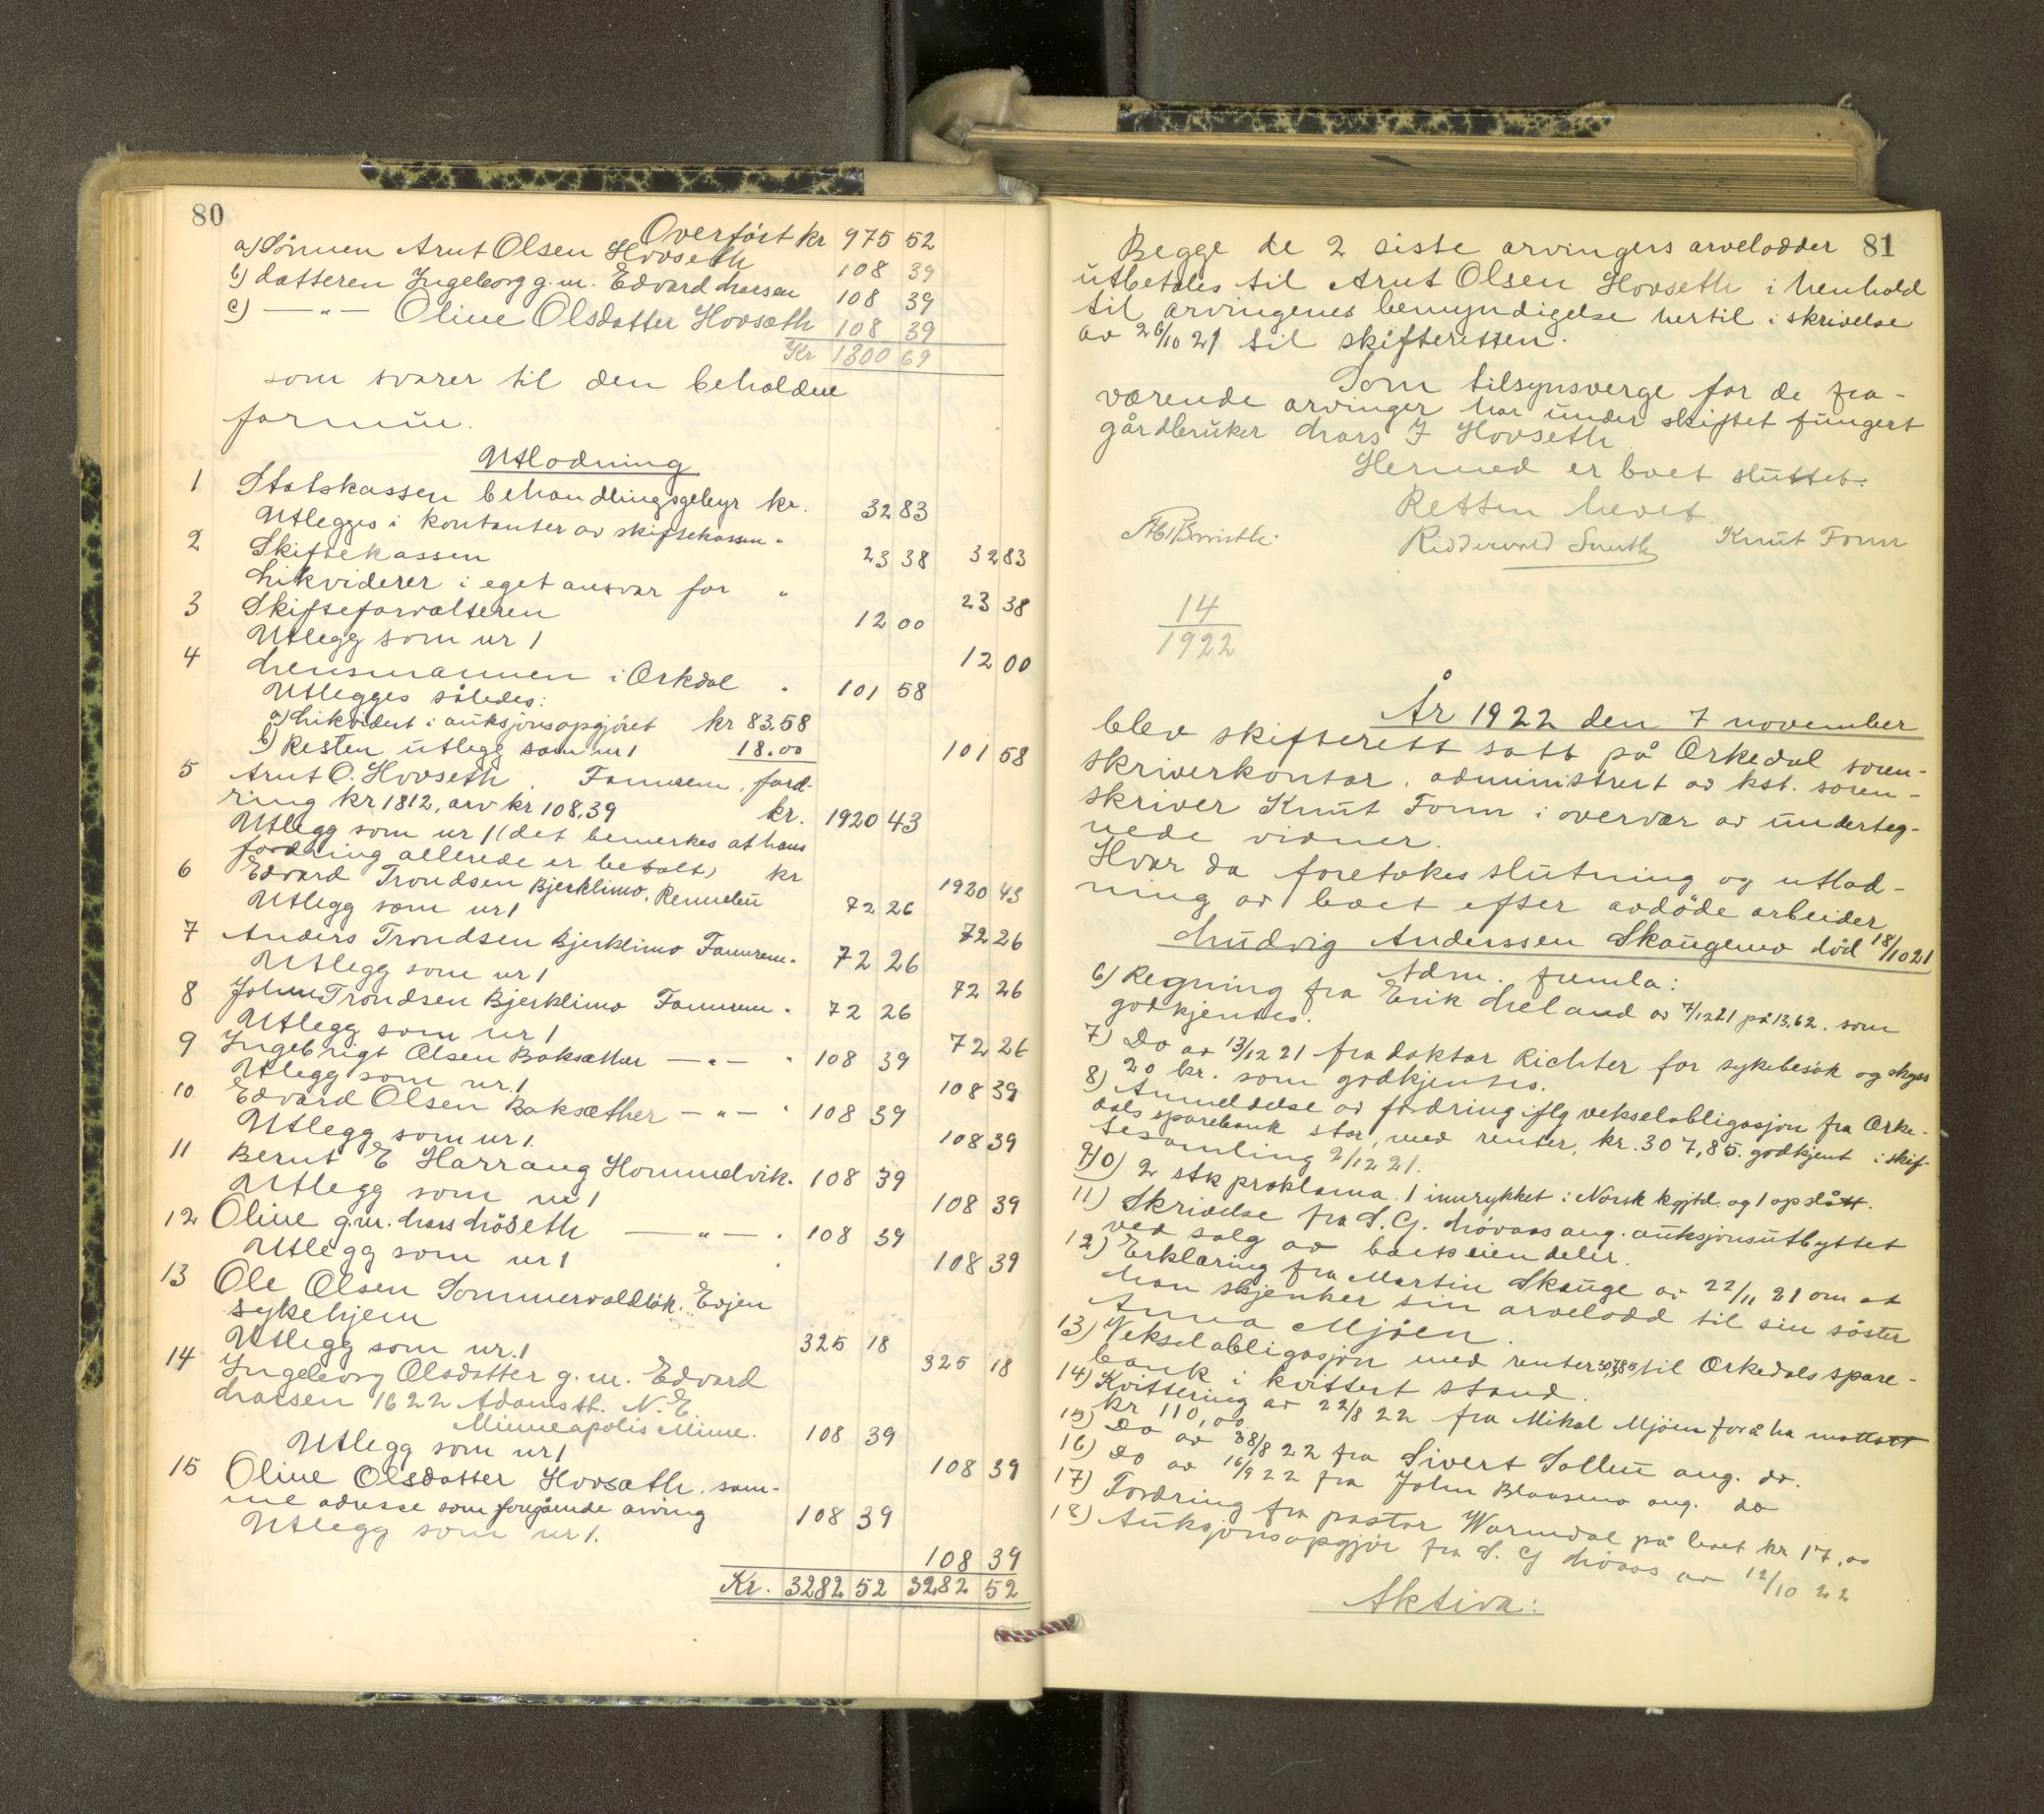 80
Overført kr 975 52
a) Sønnen Arnt Olsen Hovseth 108 39
b) datteren Ingeborg g.m. Edvard Larsen 108 39
c) — " — Oline Olsdatter Hovsæth 108 39
Kr 1300 69
som svarer til den beholdne
formue.
Utlodning
1 Statskassen behandlingsgebyr kr. 32 83
Utlegges i kontanter av skiftekassen " 32 83
2 Skiftekassen 23 38
Likviderer i eget ansvar for " 23 38
3 Skifteforvalteren 12 00
Utlegg som nr 1 12 00
4 Lensmannen i Orkdal " 101 58
Utlegges således:
a) Likvidert i auksjonsopgjöret kr 83.58
b) Resten utlegg som nr 1 18.00 101 58
5 Arnt O. Hovseth, Fannrem, ford-
ring kr 1812, arv kr 108,39 kr. 1920 43
Utlegg som nr 1 (det bemerkes at hans
fordring allerede er betalt) kr 1920 43
6 Edvard Trondsen Bjerklimo, Rennebu 72 26
Utlegg som nr 1 72 26
7 Anders Trondsen Bjerklimo Fannrem " 72 26
Utlegg som nr 1 72 26
8 John Trondsen Bjerklimo Fannrem " 72 26
Utlegg som nr 1 72 26
9 Ingebrigt Olsen Baksæther — " — " 108 39
Utlegg som nr. 1 108 39
10 Edvard Olsen Baksæther — " — " 108 39
Utlegg som nr 1. 108 39
11 Bernt E Harrang Hommelvik. 108 39
Utlegg som nr 1 108 39
12 Oline g.m. Lars Löseth — " — . 108 39
Utlegg som nr 1 108 39
13 Ole Olsen Sommervoldløk. Evjen
sykehjem 325 18
Utlegg som nr. 1 325 18
14 Ingeborg Olsdatter g.m. Edvard
Larsen 1622 Adams st. N.E
Minneapolis Minn. 108 39
Utlegg som nr 1 108 39
15 Oline Olsdatter Hovsæth. sam-
me adresse som foregående arving 108 39
Utlegg som nr 1. 108 39
Kr. 3282 52 3282 52
81
Begge de 2 siste arvingers arvelodder
utbetales til Arnt Olsen Hovseth i henhold
til arvingenes bemyndigelse hertil i skrivelse
av 26/10 21 til skifteretten.
Som tilsynsverge for de fra-
værende arvinger har under skiftet fungert
gårdbruker Lars J Hovseth
Hermed er boet sluttet.
Retten hevet.
Ridderwold Smeth Knut Fonn
14
1922
År 1922 den 7 november
blev skifterett satt på Orkedal soren-
skriverkontor, administrert av kst. soren-
skriver Knut Fonn i overvær av underteg-
nede vidner.
Hvor da foretokes slutning og utlod-
ning av boet efter avdöde arbeider
Ludvig Anderssen Skaugemo död 18/10 21
Adm. fremla:
6) Regning fra Erik Meland av 7/12 21 på 13,62. som
godkjentes.
7) Do av 13/12 21 fra doktor Richter for sykebesøk og skyss
20 kr. som godkjentes.
8) Anmeldelse av fordring iflg vekselobligasjon fra Orke-
dals sparebank stor, med renter, kr. 307,85. godkjent i skif-
tesamling 2/12 21.
9/10) 2 stk proklama. 1 innrykket i Norsk kgjtd. og 1 opslått.
11) Skrivelse fra S. G. Lövaas ang. auksjonsutbyttet
ved salg av boets eiendeler.
12) Erklæring fra Martin Skauge av 22/11 21 om at
han skjenker sin arvelodd til sin söster
Anna Mjöen.
13) Vekselobligasjon med renter 307,85, til Orkedals spare-
bank i kvittert stand.
14) Kvittering av 22/8 22 fra Mikal Mjöen for å ha mottatt
kr 110,00.
15) Do av 38/8 22 fra Sivert Sollien ang. do.
16) Do av 16/9 22 fra John Blaasmo ang. do
17) Fordring fra pastor Warmdal på boet kr 17.00
18) Auksjonsopgjör fra S. G Lövaas av 12/10 22
Aktiva: